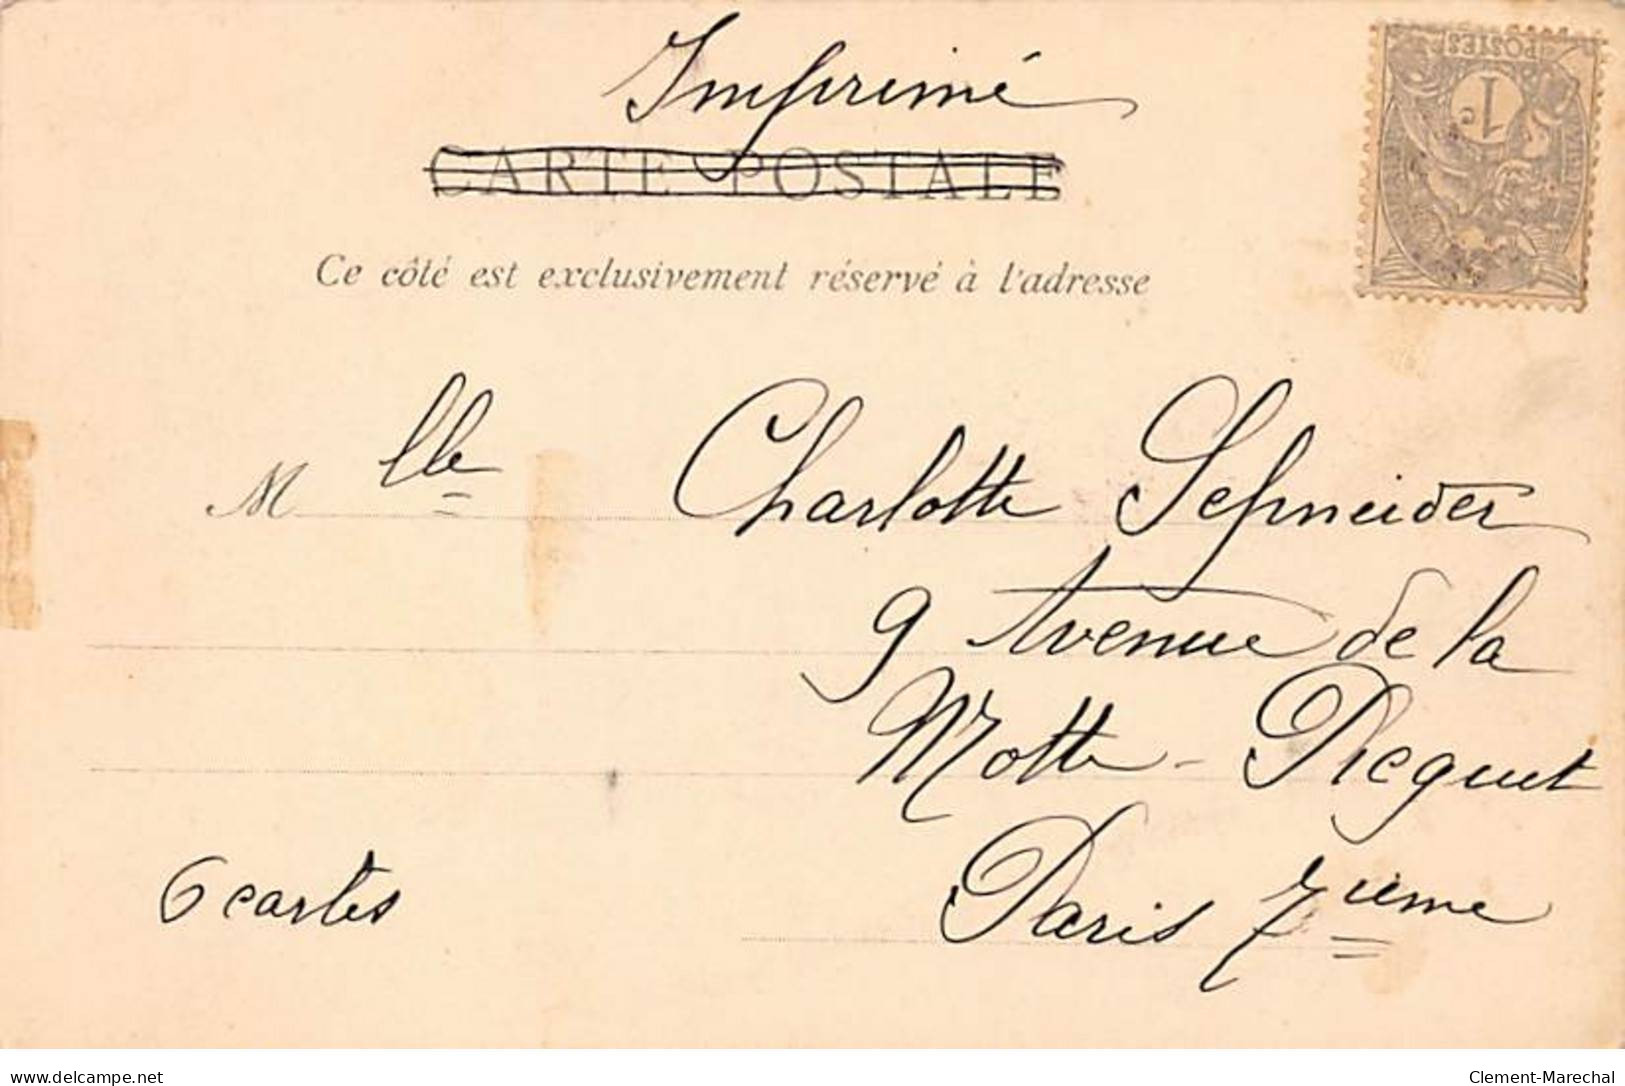 Imprimé
CARTE POSTALE
Ce côté est exclusivement réservé à l'adresse
POSTES
1c
Mlle Charlotte Schneider
9 Avenue de la
Motte-Picquet
Paris 7ieme
6 cartes
delcampe.net
Clement-Marechal